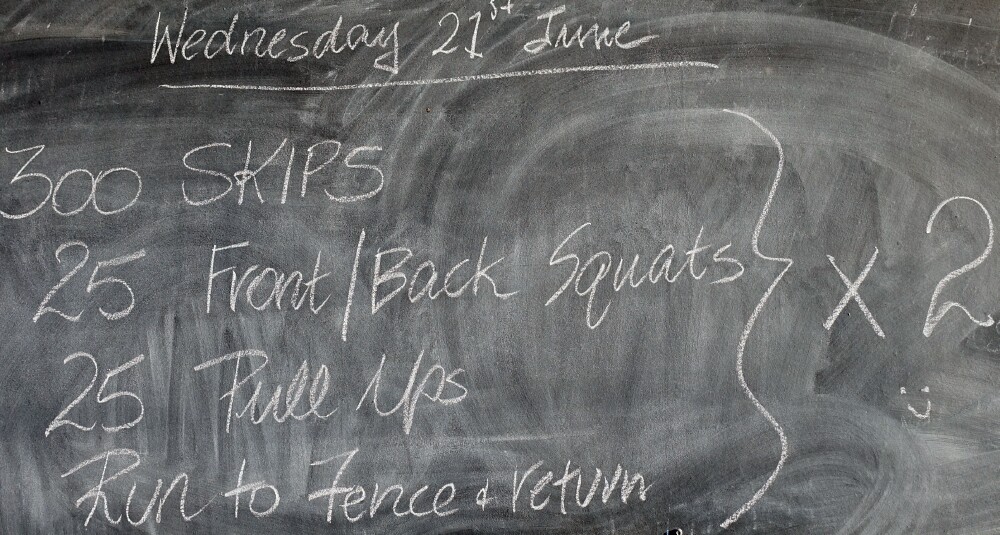 Wednesday 21st June
300 SKIPS
25 Front/Back Squats
25 Pull Ups
Run to Fence & return
x 2
:)